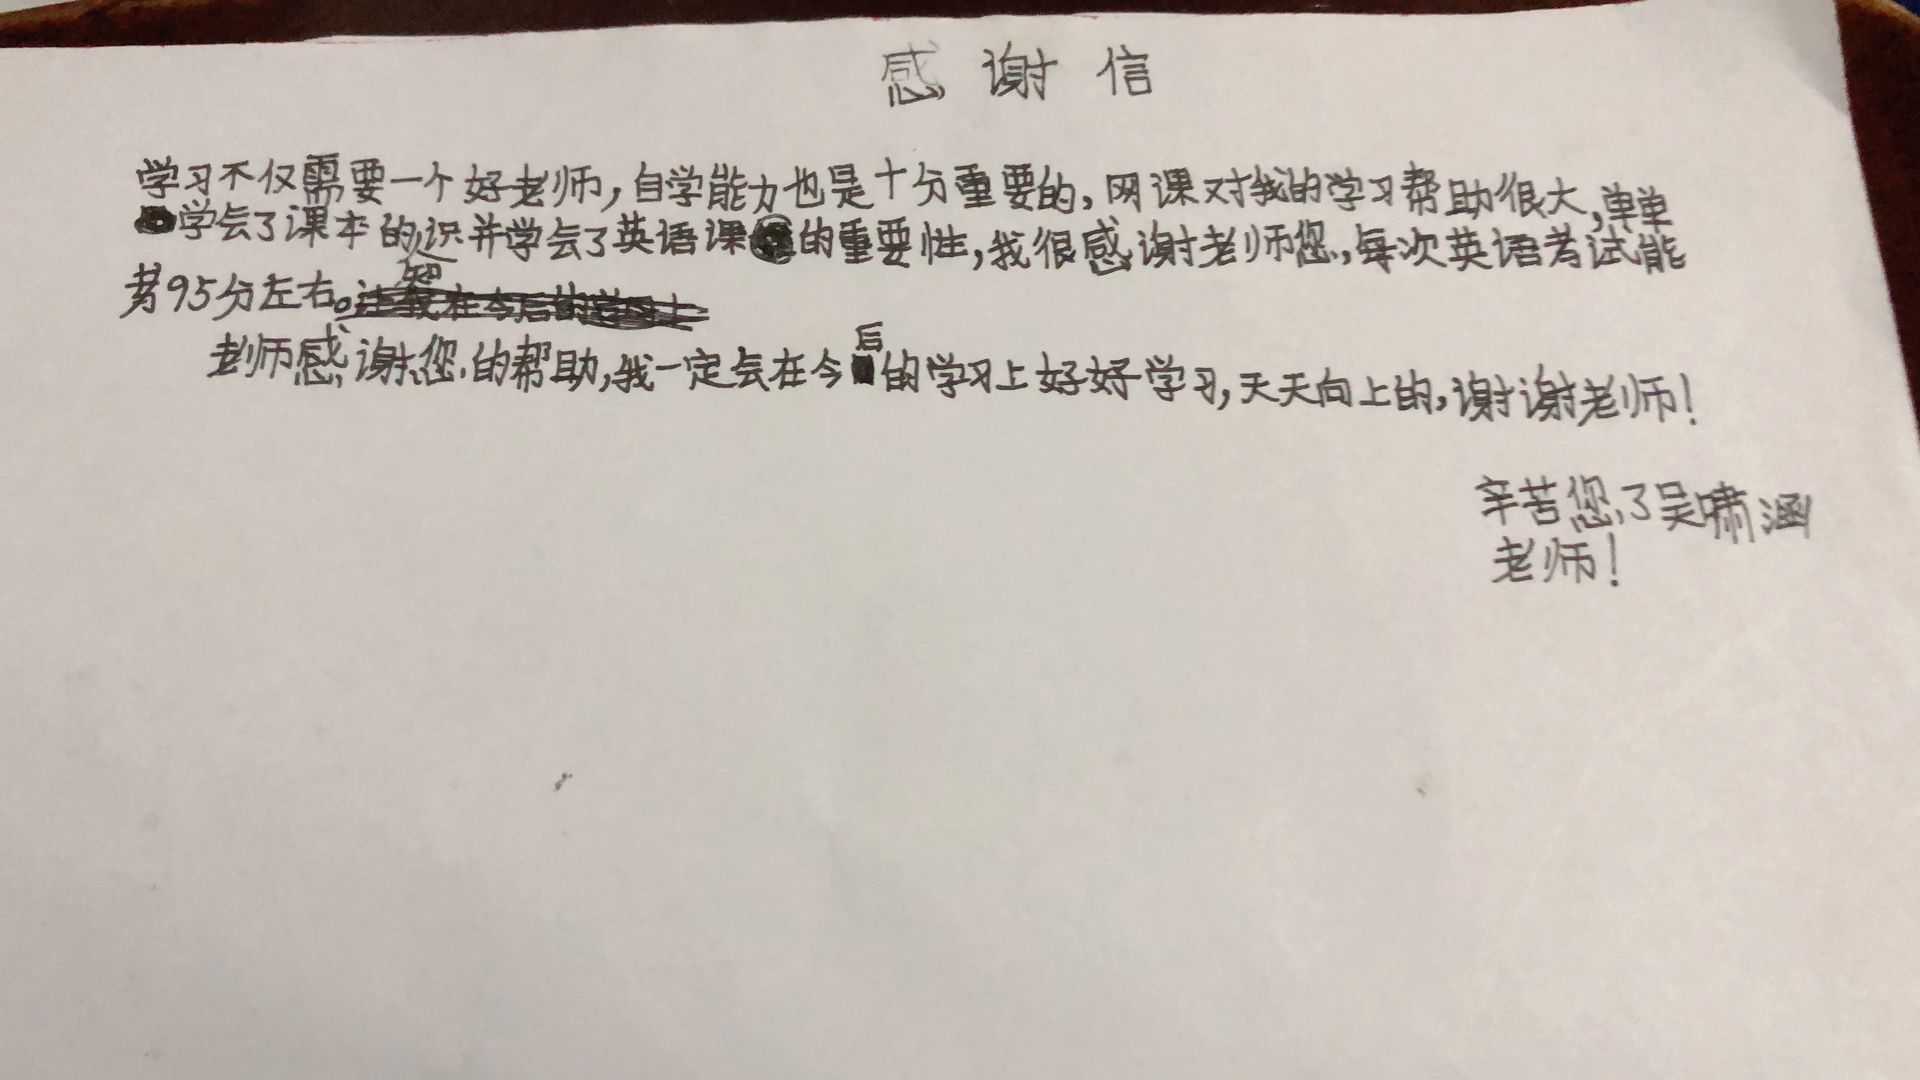 感谢信
学习不仅需要一个好老师,自学能力也是十分重要的,网课对我的学习帮助很大,单单
学会了课本的知识并学会了英语课的重要性,我很感谢老师您,每次英语考试能
考95分左右。
老师感谢您的帮助,我一定会在今后的学习上好好学习,天天向上的,谢谢老师!
辛苦您了吴啸涵
老师!